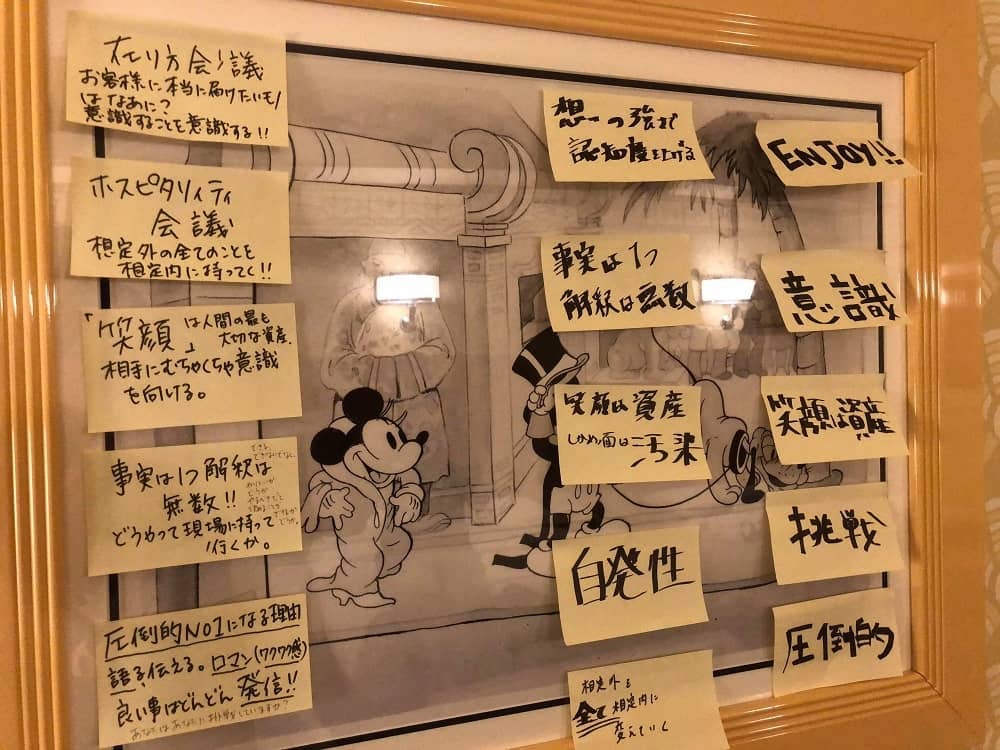 在り方会議
お客様に本当に届けたいモノ
はなあに?
意識することを意識する!!
ホスピタリィティ
会議
想定外の全てのことを
想定内に持ってく!!
「笑顔」は人間の最も
大切な資産。
相手にむちゃくちゃ意識
を向ける。
事実は1つ解釈は
無数!!
どうやって現場に持って
行くか。
圧倒的NO1になる理由
語る、伝える。ロマン(ワクワク感)
良い事はどんどん発信!!
あなたはあなたに挑戦していますか?
想いの強さで
認知度を上げる
事実は1つ
解釈は無数
笑顔は資産
しかめ面は汚染
自発性
想定外を
全て想定内に
変えていく
ENJOY!!
意識
笑顔は資産
挑戦
圧倒的